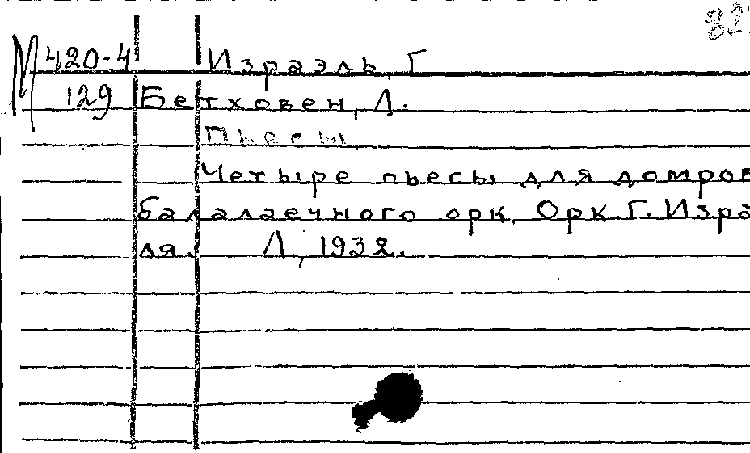 М 420-4 Израэль, Г
129 Бетховен, Л.
Пьесы
Четыре пьесы для домров
балалаечного орк. Орк Г. Изра
ля. Л, 1932.